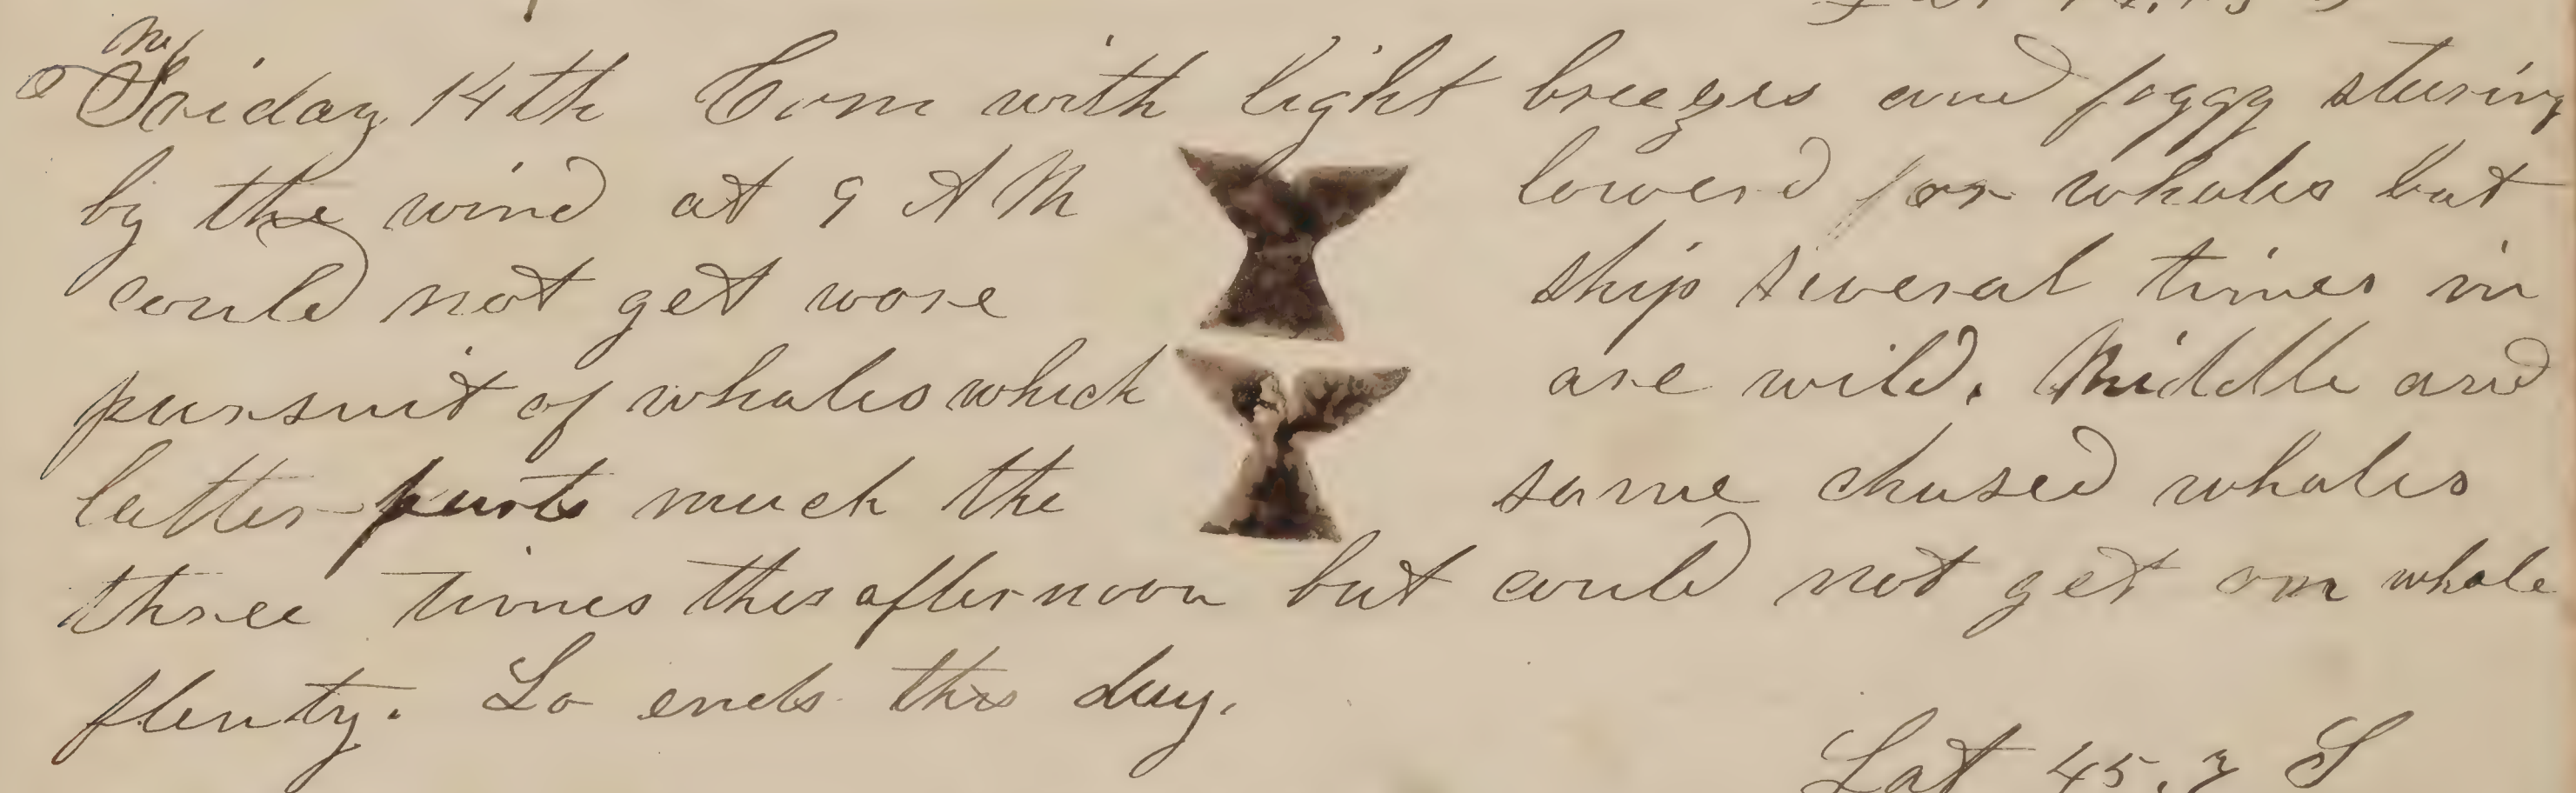 Friday 14th Com with light breezes and foggy steering
by the wind at 9 A M lowerd for whales but
could not get wore ship several times in
pursuit of whales which are wild. Middle and
latter parts much the same chased whales
three times this afternoon but could not get on whale
plenty. So ends this day.
Lat 45.3 S